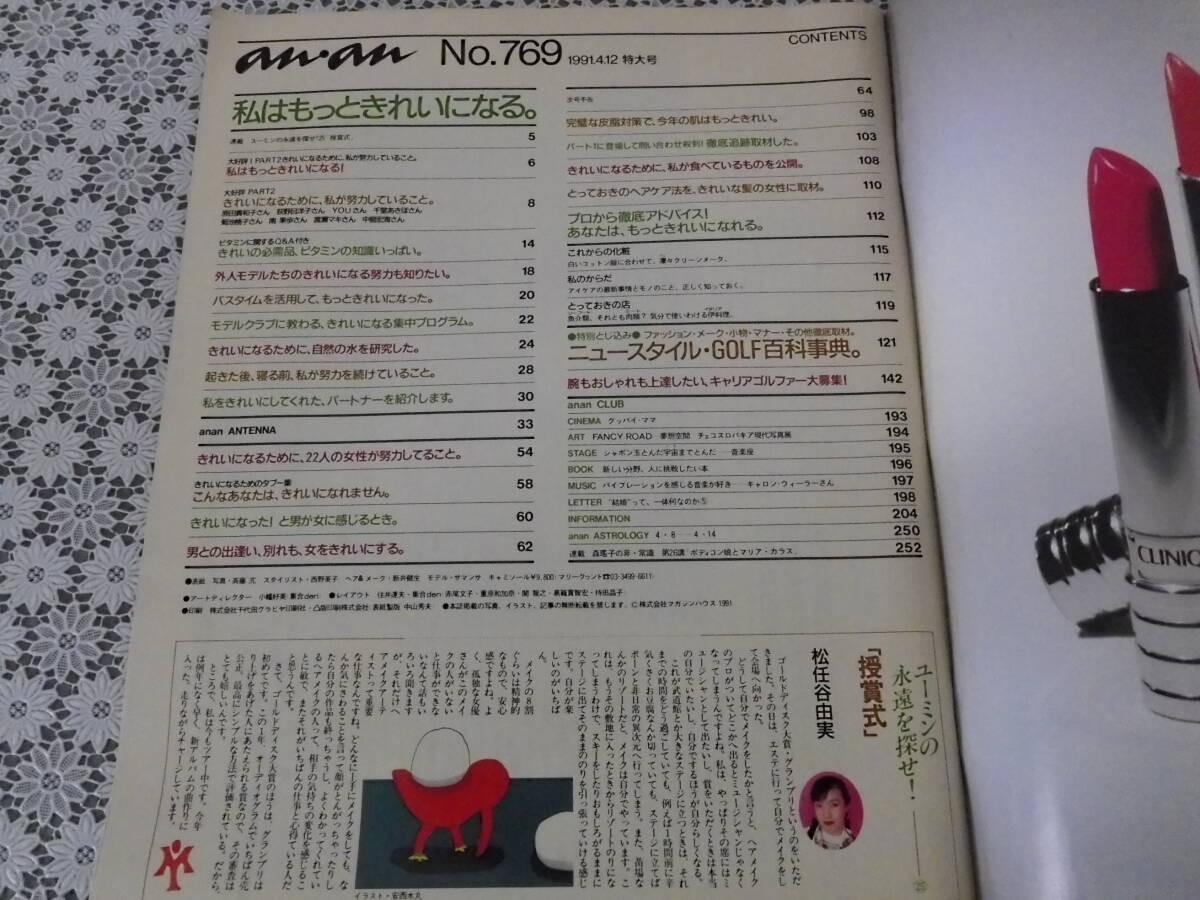 an・an No.769 1991.4.12 特大号
CONTENTS
私はもっときれいになる。
連載 ユーミンの永遠を探せ!㉕ 授賞式 5
大好評!PART2きれいになるために、私が努力していること。
私はもっときれいになる! 6
大好評 PART2
きれいになるために、私が努力していること。 8
原田貴和子さん 荻野目洋子さん YOUさん 千堂あきほさん
菊池桃子さん 南 果歩さん 渡瀬マキさん 中嶋宏海さん
ビタミンに関するQ&A付き
きれいの必需品、ビタミンの知識いっぱい。 14
外人モデルたちのきれいになる努力も知りたい。 18
バスタイムを活用して、もっときれいになった。 20
モデルクラブに教わる、きれいになる集中プログラム。 22
きれいになるために、自然の水を研究した。 24
起きた後、寝る前、私が努力を続けていること。 28
私をきれいにしてくれた、パートナーを紹介します。 30
anan ANTENNA 33
きれいになるために、22人の女性が努力してること。 54
きれいになるためのタブー集
こんなあなたは、きれいになれません。 58
きれいになった!と男が女に感じるとき。 60
男との出逢い、別れも、女をきれいにする。 62
次号予告 64
完璧な皮脂対策で、今年の肌はもっときれい。 98
パート1に登場して問い合わせ殺到!徹底追跡取材した。 103
きれいになるために、私が食べているものを公開。 108
とっておきのヘアケア法を、きれいな髪の女性に取材。 110
プロから徹底アドバイス!
あなたは、もっときれいになれる。 112
これからの化粧 115
白いコットン服に合わせて、凛々クリーンメーク。
私のからだ 117
アイケアの最新事情とモノのこと、正しく知っておく。
とっておきの店 119
魚介類、それとも肉類?気分で使いわける伊料理。
●特別とじ込み● ファッション・メーク・小物・マナー・その他徹底取材。
ニュースタイル・GOLF百科事典。 121
腕もおしゃれも上達したい、キャリアゴルファー大募集! 142
anan CLUB
CINEMA グッバイ・ママ 193
ART FANCY ROAD 夢想空間 チェコスロバキア現代写真展 194
STAGE シャボン玉とんだ宇宙までとんだ──音楽座 195
BOOK 新しい分野、人に挑戦したい本 196
MUSIC バイブレーションを感じる音楽が好き──キャロン・ウィーラーさん 197
LETTER “結婚”って、一体何なのか⑤ 198
INFORMATION 204
anan ASTROLOGY 4・8──4・14 250
連載 森瑤子の非・常識 第26講 ボディコン娘とマリア・カラス 252
●表紙 写真・斉藤 亢 スタイリスト・西野英子 ヘア&メーク・新井健生 モデル・サマンサ キャミソール¥9,800/マリークヮント☎03-3499-6611
●アートディレクター 小幡好美(集合den) ●レイアウト (住井達夫・集合den)赤尾文子・重原和加奈・関 智之・島篭真智宏・持田晶子
●印刷 株式会社千代田グラビヤ印刷社・凸版印刷株式会社 表紙製版 中山秀夫 ●本誌掲載の写真、イラスト、記事の無断転載を禁じます。©株式会社マガジンハウス 1991
ユーミンの
永遠を探せ!──㉕
「授賞式」
松任谷由実
ゴールドディスク大賞・グランプリというのをいただ
きました。その日は、エステに行って自分でメイクをし
て会場へ向かった。
どうして自分でメイクをしたかと言うと、ヘアメイク
のプロがついてどこかへ出るとミュージシャンじゃなく
なってしまうんですよね。私は、やっぱりその席にはミ
ュージシャンとして出たいし、賞をいただくときは本当
の自分でいたいし、自分でするほうが自分らしくなる。
これが武道館とか大きなステージに立つときは、それ
までの時間をどう過ごしていても、例えば1時間前に辛
気くさくお豆腐なんか切っていても、ステージに立てば
ポーンと非日常の異次元へ行ってしまう。また、苗場な
んかのリゾートだと、メイクは自分でやっています。こ
れは、もうその敷地に入ったときからリゾートのりにな
ってしまうわけで、スキーをしたりおもしろがるままに
ステージに出てそのままのりを引っ張っていける感じ
です。自分が楽
しいのがいちば
ん。
メイクの8割
ぐらいは精神的
なもので、安心
感ですよね。よ
く、孤独な女優
さんがこのメイ
クの人がいない
と仕事ができな
いなんて話もい
ろいろ聞きます
が、それだけヘ
アメイクアーテ
ィストって重要
な仕事なんですね。どんなに上手にメイクをしても、な
んか気にさわることを言って顔がとんがっちゃったりし
たら自分の作品も終っちゃうし、よくわかってくれてい
るヘアメイクの人って、相手の気持ちの変化を感じるこ
とに敏で、またそれがいちばんの仕事と心得ている人だ
と思うんです。
さて、ゴールドディスク大賞のほうは、グランプリは
初めてです。この1年、オーディオグラムでいちばん売
り上げをあげた人にあたえられる賞なので、その審査は
公正。最高にシンプルな方法で評価されている。だから、
とても嬉しいんです。
ところで、私は今もツアー中です。今年
は例年になく早く、新アルバムの曲作りに
入った。走りながらチャージしています。
イラスト・安西水丸
CLINIQ